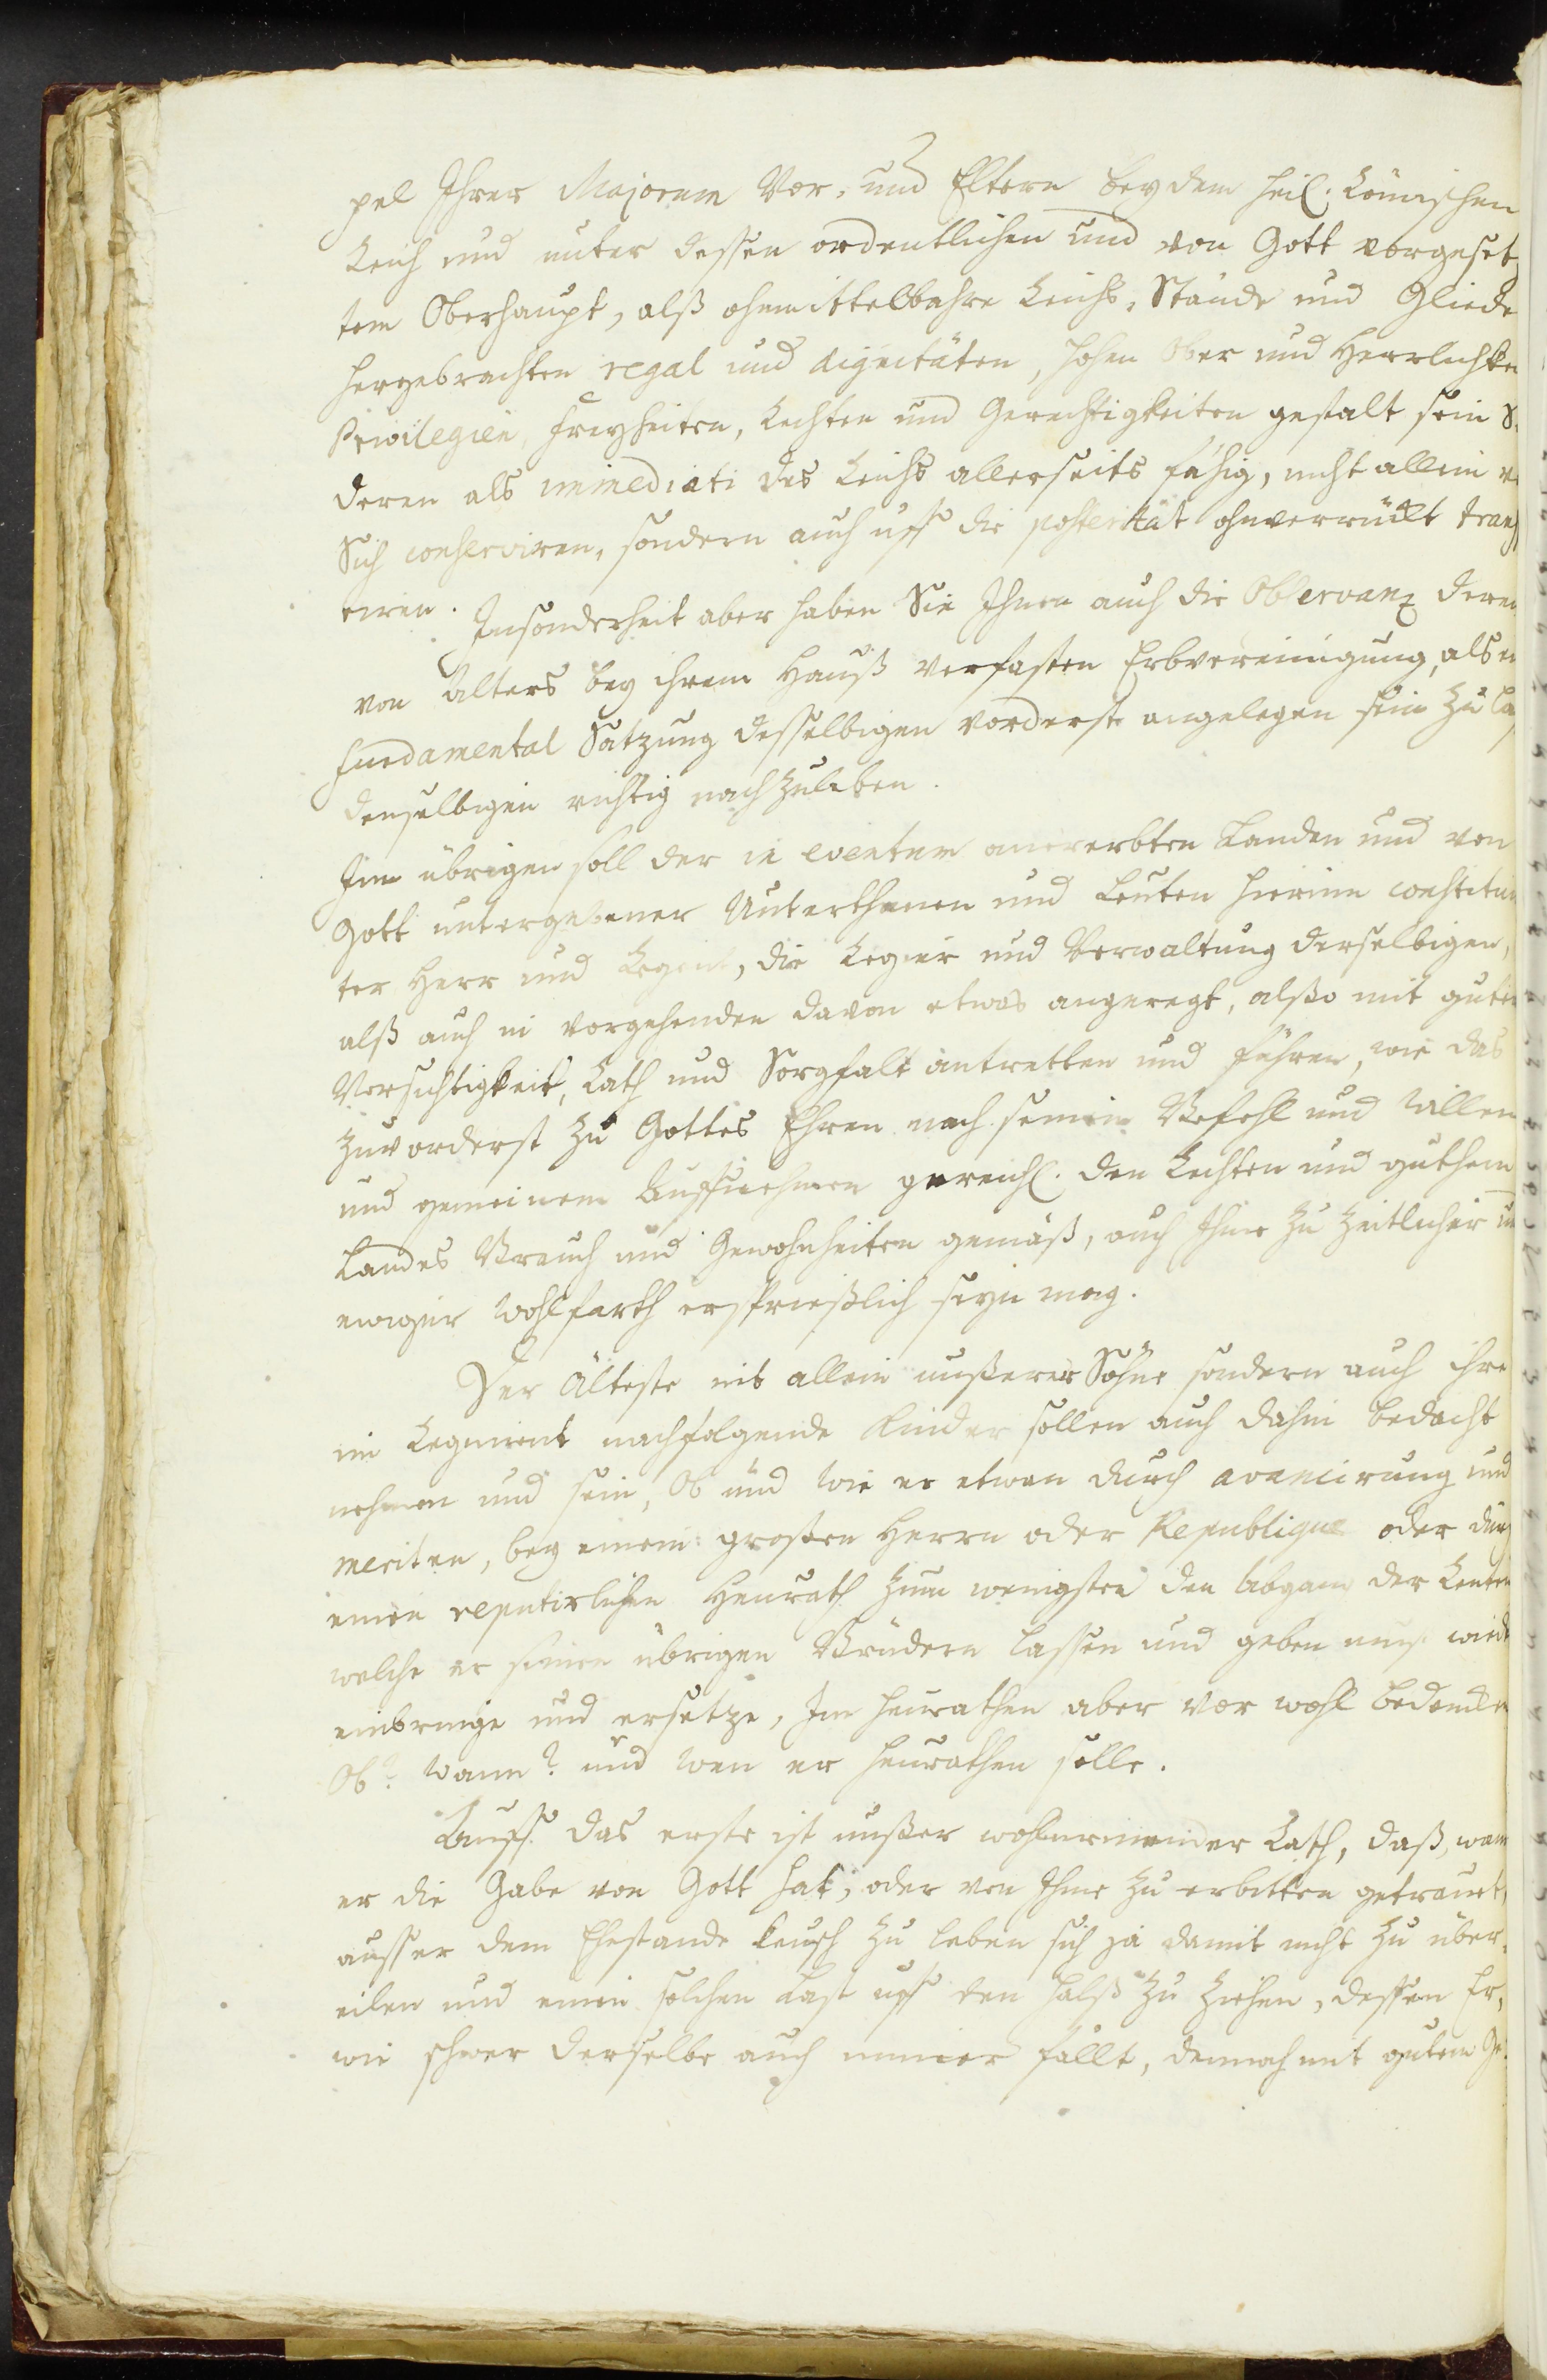 pel Ihrer Majorum Vor- und Eltern bey dem heil. Römischen
Reich und unter dessen ordentlichen und von Gott vorgeset,
tem Oberhaupt, alß ohnmittelbahre Reichs, Stände und Gliede
hergebrachten regal und dignitäten, hohen Ober und Herrlichkei
Privilegien, Freyheiten, Rechten und Gerechtigkeiten gestalt sein S
deren als immediati des Reichs allerseits fähig, nicht allein
Sich conserviren, sondern auch uff die posterität ohnverrückt trans
eiren. Insonderheit aber haben Sie Ihnen auch die Observanz deren
von Alters bey ihrem Hauß verfasten Erbvereinigung, als
fundamental Satzung desselbigen vorderst angelegen sein zu la
denselbigen richtig nach zuleben.
Im übrigen soll der in eventum anererbten Landen und von
Gott untergebener Unterthanen und Leuten hierinn constitui
ter Herr und Regent, die Regier und Verwaltung derselbigen,
alß auch in vorgehenden davon etwas angeregt, alßo mit guter
Vorsichtigkeit, Rath und Sorgfalt antretten und führen, wie das
zuvorderst zu Gottes Ehren nach seinem Befehl und Willen
und gemeinem Auffnehmen gereichl. den Rechten und guthem
Landes Brauch und Gewohnheiten gemäß, auch Ihme zu Zeitlicher un
ewiger Wohlfarth ersprießlich seyn mag.
Der Älteste nit allein unßerer Söhne sondern auch ihre
im Regiment nachfolgende Kinder sollen auch dahin bedacht
nehmen und sein, Ob und wie er etwan durch avancirung und
meriten, bey einem großen Herrn oder Republique oder durch
einen reputirlichen Heurath zum wenigsten den Abgang der Renten
welche er seinen übrigen Brüdern lassen und geben muß wied
einbringe und ersetze, Im heurathen aber vor wohl bedencken
Ob? Wann? und wen er heurathen solle.
Auff das erste ist unßer wohlmeinender Rath, daß, wan
er die Gabe von Gott hat, oder von Ihme zu erbitten getrauet,
ausser dem Ehestande keusch zu leben sich ja damit nicht zu über,
eilen und einen solchen Last uff den halß zu ziehen, dessen Er,
wie schwer derselbe auch immer fällt, dennoch mit gutem Ge